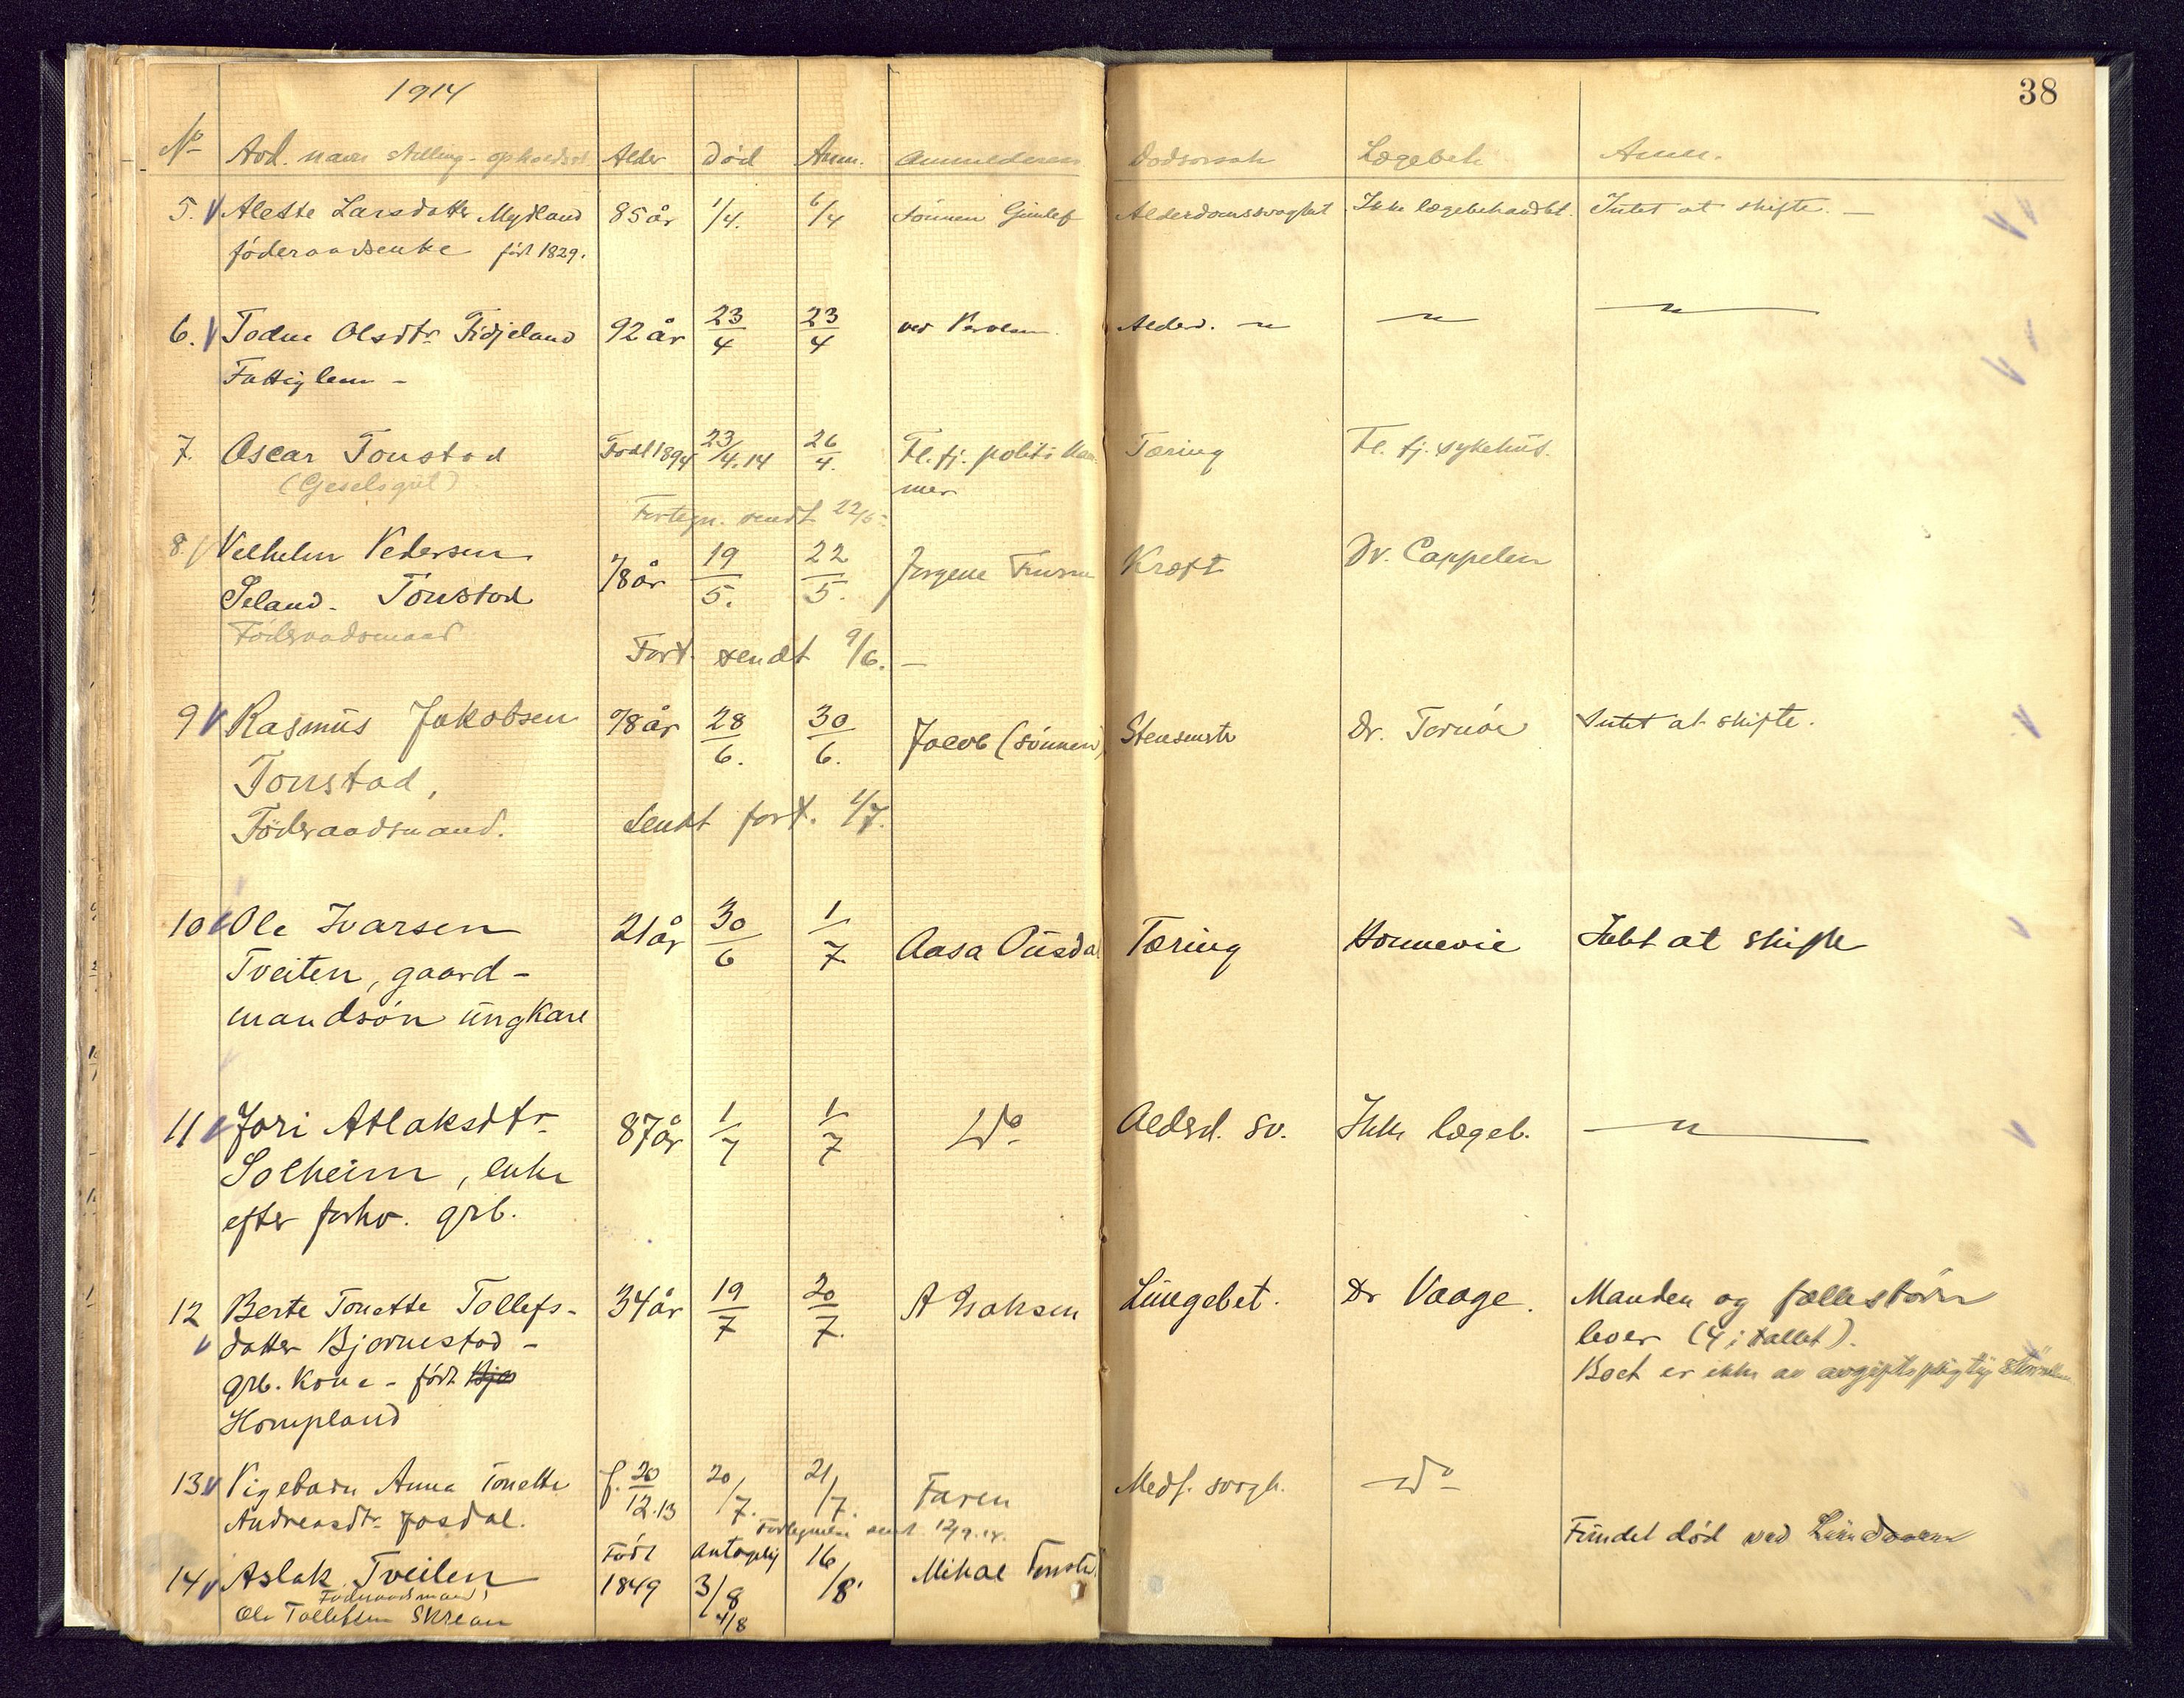 38
1914
No Avd. navn stilling - opholdsst Alder Død Anm. Anmelderen Dødsorsak Lægebeh Anm.
5. Alette Larsdatter Mydland 85 år 1/4. 6/4 Sönnen Gunlef Alderdomssvaghet Ikke lægebehandlet. Intet at skifte. —
föderaadsenke født 1829.
6. Todne Olsdtr. Fidjeland 92 år 23/4 23/4 ved Alderd. — " — — " — — " —
Fattiglem -
7. Oscar Tonstad Født 1894 23/4.14 26/4. Fl.fj. politikam- Tæring Fl. fj. sykehus.
(Geiselsgut) mer
Fortegn. sendt 22/5
8. Vilhelm Pedersen 78 år 19/5. 22/5. Jorgene Kræft Dr. Cappelen
Seland - Tonstad
Föderaadsmand
Fort. sendt 9/6. —
9 Rasmus Jakobsen 78 år 28/6. 30/6. Jacob (sönnen) Stensmerter Dr. Tornöe Intet at skifte.
Tonstad,
Föderaadsmand. Sendt fort. 1/7.
10 Ole Ivarsen 21 år 30/6 1/7 Aasa Ousdal Tæring Honnevie Intet at skifte
Tveiten, gaard-
mandsön ungkare
11 Jori Atlaksdtr. 87 år 1/7 1/7 Do Aldersd. sv. Ikke lægeb. — " —
Solheim, enke
efter forhv. grb.
12 Berte Tonette Tollefs- 34 år 19/7 20/7. A Isaksen Lungebet. Dr Vaage. Manden og fællesbörn
datter Bjørnestad - lever (4 i tallet).
grb. kone - født Bjø Boet er ikke av avgiftspligtig störrelse
Hompland
13 Pigebarn Anna Tonette f. 20/12.13 20/7. 21/7. Faren Medf. svagh. Do
Andreasdtr. Josdal.
Fortegnelse sendt 12/9.18.
Fundet död ved
14 Aslak Tveiten Født 1849 antagelig 3/8 16/8 Mikal Tonstad
Föderaadsmand
Ole Tollefsen Skrean 4/8